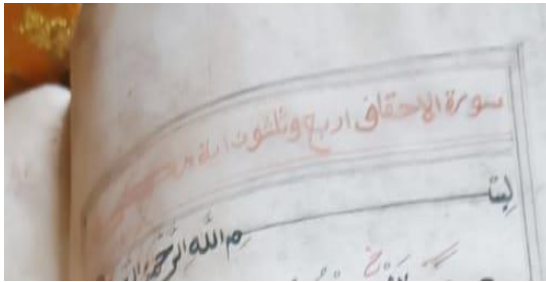 سورة الاحقاف اربع وثلثون اية
بسم الله الرحمن